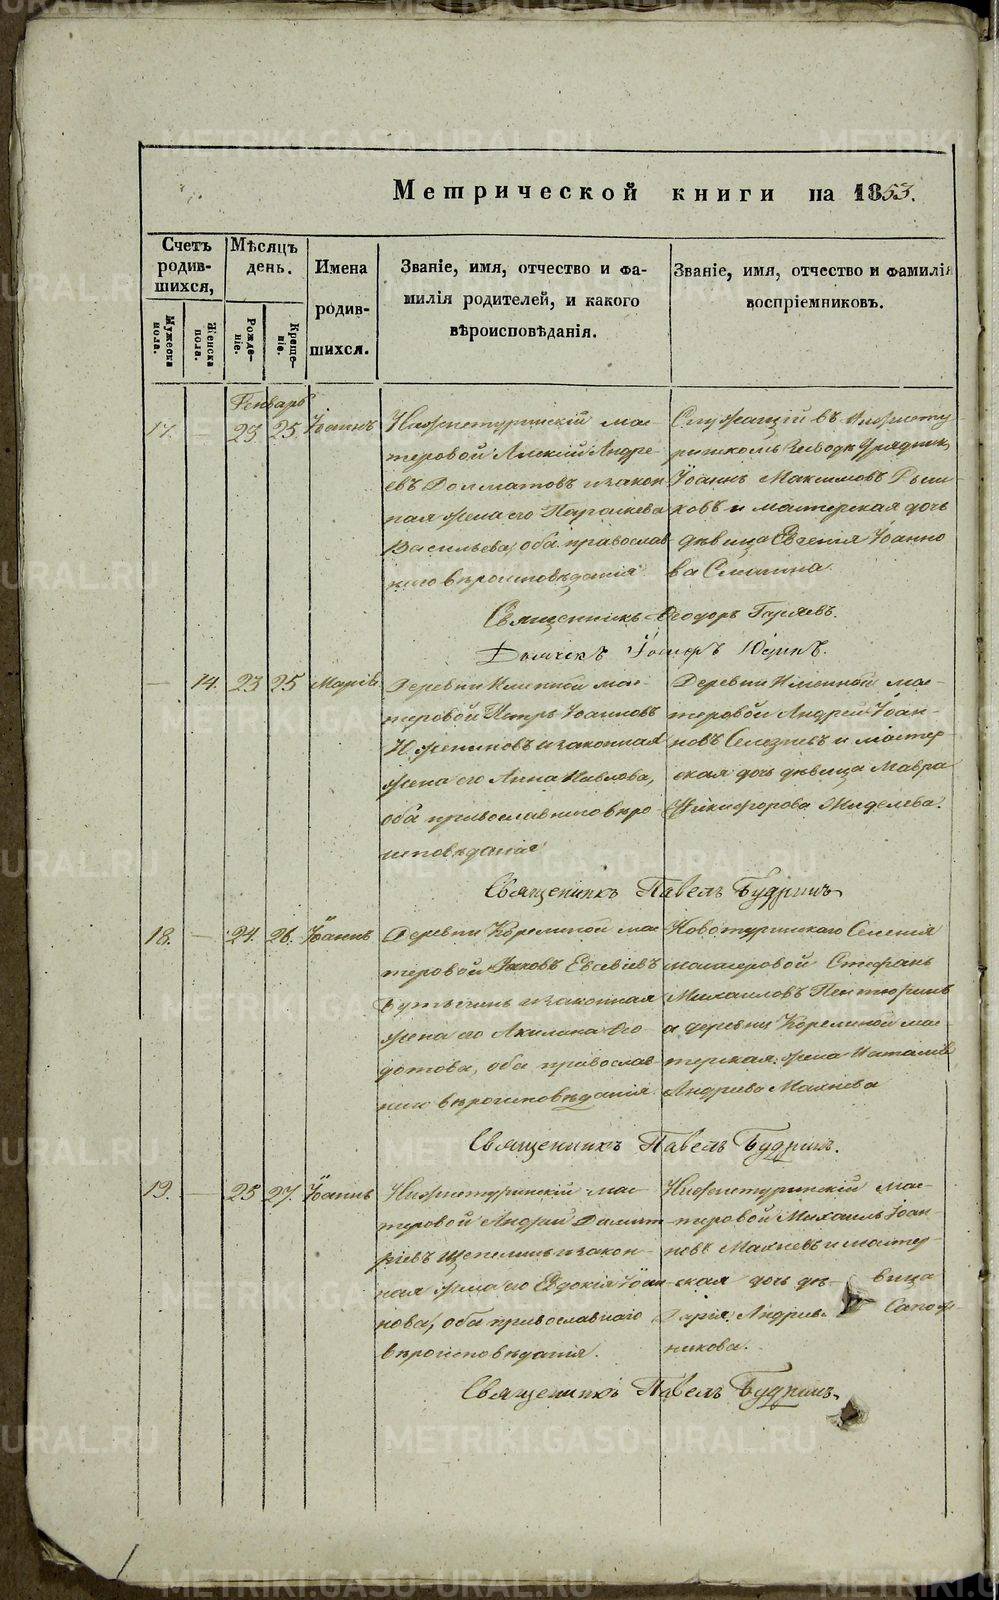 Метрической книги на 1853.
Счетъ родив-шихся,
Мужеска пола.
Женска пола.
Мѣсяцъ день.
Рожде-ніе.
Креще-ніе.
Имена
родив-
шихся.
Званіе, имя, отчество и фа-
милія родителей, и какого
вѣроисповѣданія.
Званіе, имя, отчество и фамилія
воспріемниковъ.
Генварь
17. — 23 25 Іоаннъ
Нижнетуринскій мас-
теровой Алексій Андре-
евъ Долматовъ и закон-
ная жена его Параскева
Васильева, оба православ-
наго вѣроисповѣданія.
Служащій въ Нижнету-
ринскомъ Заводѣ Урядникъ
Іоаннъ Максимовъ
и мастерская дочь
дѣвица Евгенія Іоанно-
ва
Священникъ Ѳеодоръ Гаряевъ.
Дьячекъ Юдинъ.
— 14. 23 25 Марія
Деревни Именной мас-
теровой Петръ Іоанновъ
и законная
жена его Анна Павлова,
оба православнаго вѣро-
исповѣданія
Деревни Именной мас-
теровой Андрей Іоан-
новъ Селезневъ и мастер-
ская дочь дѣвица Мавра
Никифорова
Священникъ Павелъ Будринъ.
18. — 24. 26. Іоаннъ
Деревни Корелиной мас-
теровой Яковъ
и законная
жена его Акилина Ѳео-
дотова, оба православ-
наго вѣроисповѣданія.
Новотуринскаго Селенія
мастеровой Стефанъ
Михаиловъ Пентюринъ
а деревни Корелиной мас-
терская жена Наталія
Андреева Махнева
Священникъ Павелъ Будринъ.
19. — 25 27. Іоаннъ
Нижнетуринскій мас-
теровой Андрей Димит-
ріевъ Щепелинъ и закон-
ная жена его Евдокія Іоан-
нова, оба православнаго
вѣроисповѣданія.
Нижнетуринскій мас-
теровой Михаилъ Іоан-
новъ Махневъ и мастер-
ская дочь дѣ- вица
Дарія Андреева Сапож-
никова.
Священникъ Павелъ Будринъ.
METRIKI.GASO-URAL.RU